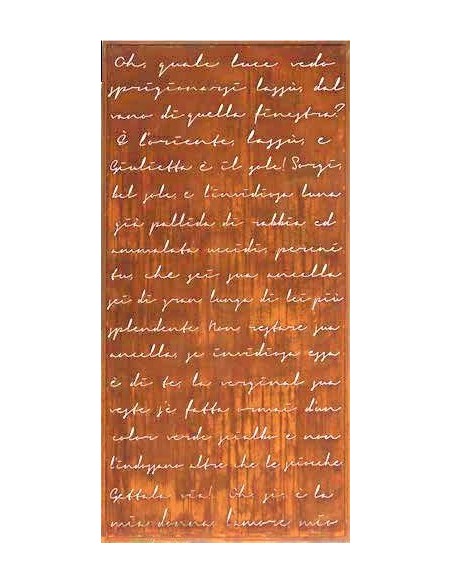 Oh, quale luce vedo
sprigionarsi lassù, dal
vano di quella finestra?
È l'oriente, lassù, e
Giulietta è il sole! Sorgi,
bel sole, e l'invidiosa luna
già pallida di rabbia ed
ammalata uccidi, perché
tu, che sei sua ancella
sei di gran lunga di lei più
splendente. Non restare sua
ancella, se invidiosa essa
è di te; la verginal sua
veste s'è fatta ormai d'un
color verde scialbo e non
l'indossano altre che le sciocche
Gettala via! Oh, sì, è la
mia donna, l'amore mio